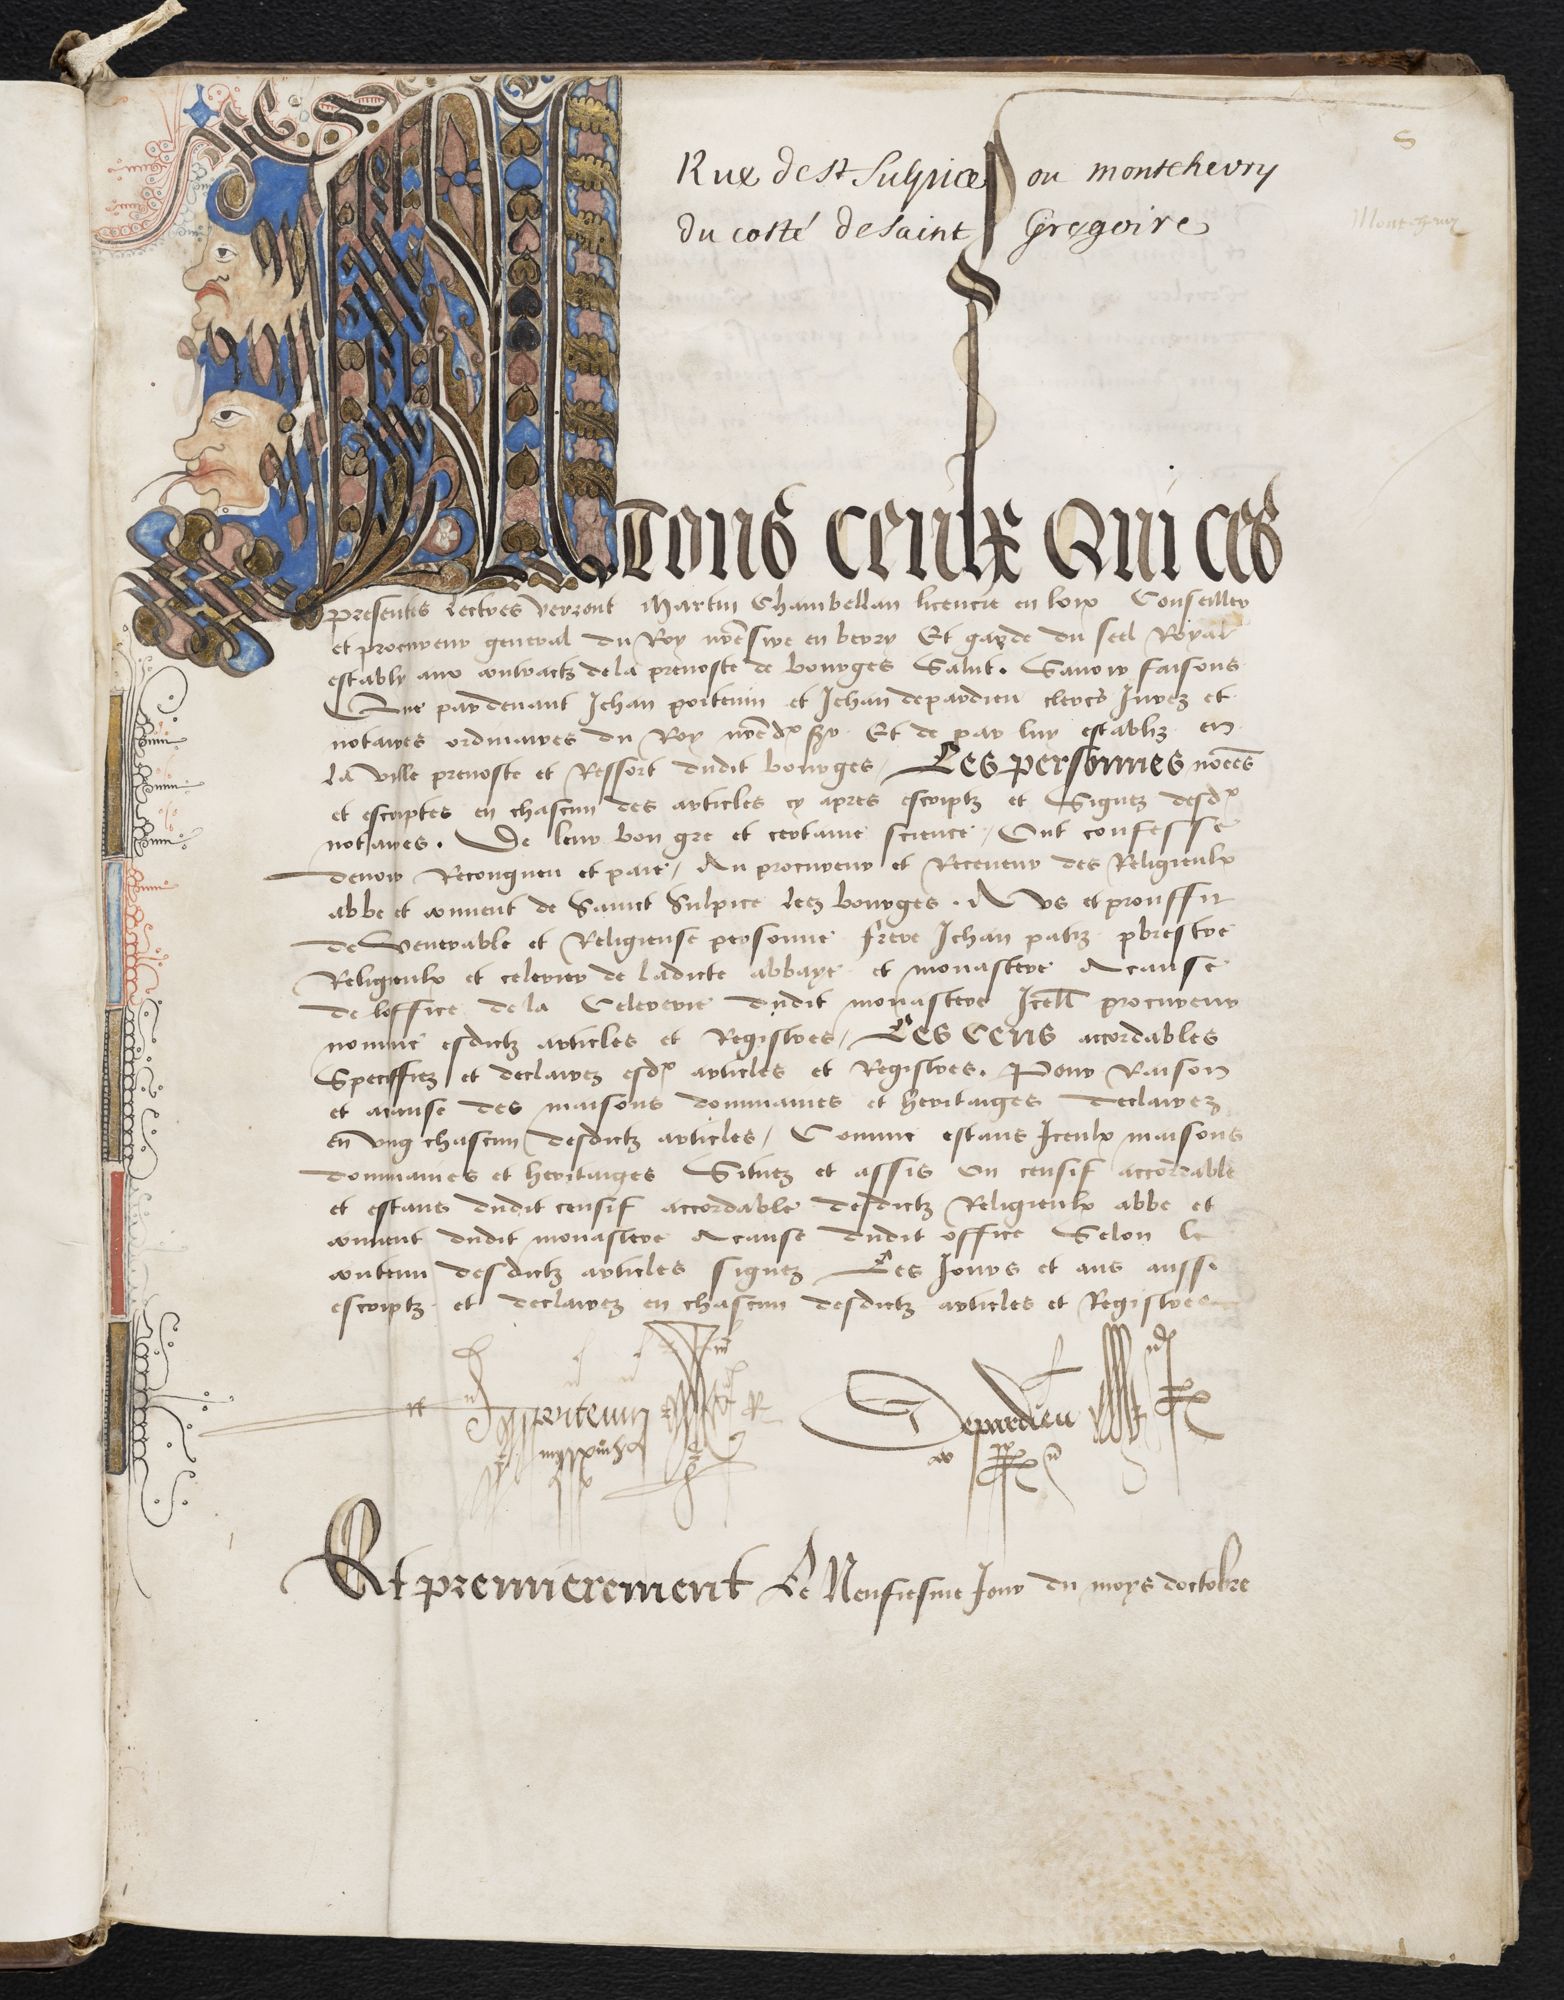 Rue de st Sulpice ou montchevry
du costé de saint Gregoire
Montchevry
A Tous ceulx Qui ces
presentes lectres verront Martin Chambellan licencie en loix Conseiller
et procureur general du Roy nre sire en berry Et garde du seel Royal
estably aux contractz de la prevoste de bourges Salut. Savoir faisons
Que par devant Jehan poitevin et Jehan depardieu clercs Jurez et
notaires ordinaires du Roy nred sr Et de par luy establiz en
la ville prevoste et Ressort dudit bourges / Les personnes nomees
et escriptes en chascun des articles cy apres escriptz et Signez desd
notaires. De leur bon gre et certaine science / Ont confesse
devoir Recongneu et paie / Au procureur et Receveur des Religieulx
abbe et couvent de Sainct Sulpice lez bourges. A Us et prouffit
de Venerable et Religieuse personne frere Jehan patiz pbrestre
Religieulx et celerier de ladicte abbaye et monastere A cause
de loffice de la Celererie dudit monastere Icell procureur
nomme esdictz articles et Registres / Les Cens accordables
Speciffiez et declairez esd articles et Registres. Pour Raison
et a cause des maisons dommaines et heritaiges declairez
en ung chascun desdictz articles / Comme estans Iceulx maisons
dommaines et heritaiges Situez et assis On censif accordable
et estans dudit censif accordable desdictz Religieulx abbe et
couvent dudit monastere A cause dudit office Selon le
contenu desdictz articles signez Les Jours et ans aussi
escriptz et declairez en chascun desdictz articles et Registres
poitevin Depardieu
Et premierement Le Neufiesme Jour du moys doctobre